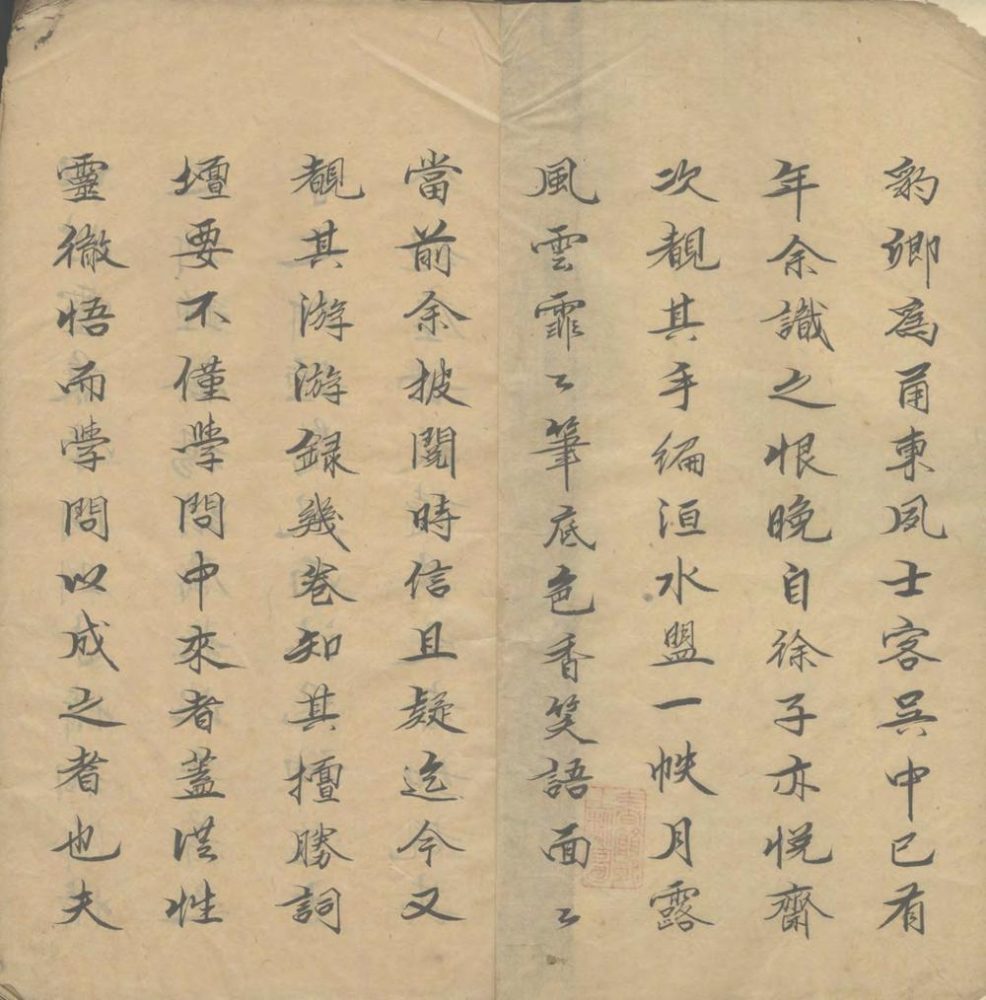 豹卿為甬東夙士客吳中已有
年余識之恨晚自徐子亦悅齋
次覩其手編洹水盟一帙月露
風雲霏〻筆底色香笑語面〻
當前余披閱時信且疑迄今又
覩其游游録幾卷知其擅勝詞
壇要不僅學問中來者蓋從性
靈徹悟而學問以成之者也夫